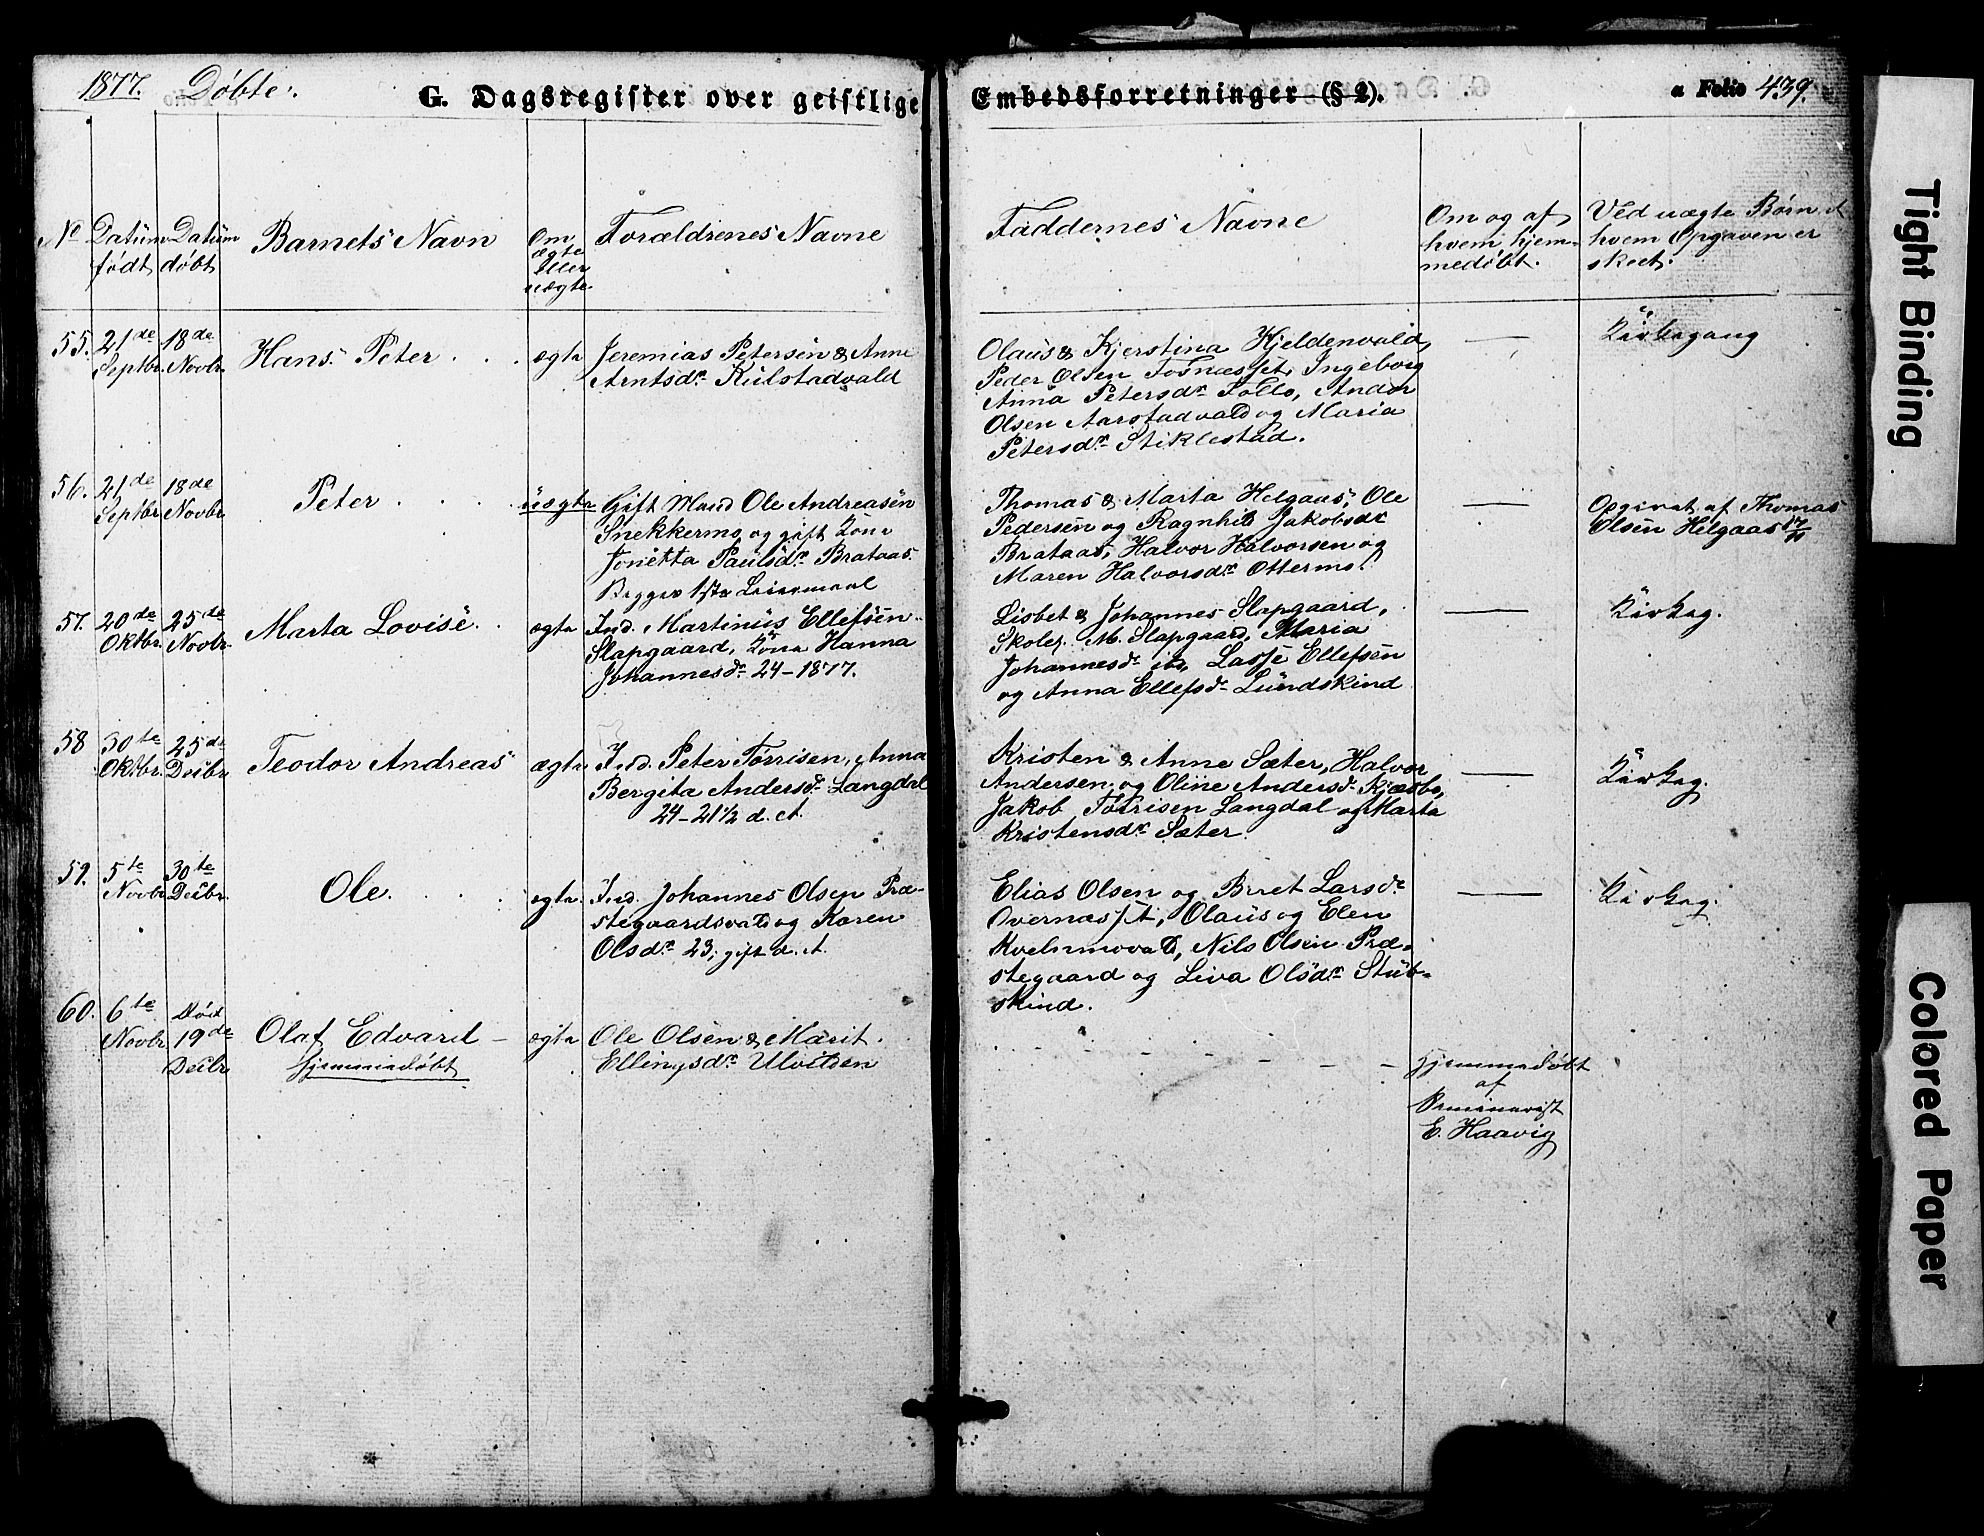 1877. Døbte.
G. Dagsregister over geistlige Embedsforretninger (§ 2).
a Folio 439.
No Datum født Datum døbt Barnets Navn Om ægte eller uægte Forældrenes Navne Faddernes Navne Om og af hvem hjemmedøbt. Ved uægte Børn af hvem Opgaven er skeet.
55. 21de Septbr. 18de Novbr. Hans Peter ægte
Jeremias Petersen & Anne
Arntsdr Kulstadvald
Olaus & Kjerstina Hjeldenvald,
Peder Olsen Fosnæsset, Ingeborg
Anna Petersdr Follo, Andor
Olsen Aarstadvald og Maria
Petersdr Stiklestad.
—
Kirkegang
56. 21de Septbr. 18de Novbr. Peter uægte
Gift Mand Ole Andreasen
Snekkermo og gift Kone
Jonetta Paulsdr Brataas.
Begges 1ste Leiermaal
Thomas & Marta Helgaas, Ole
Pedersen og Ragnhild Jakobsdr
Brataas, Halvor Halvorsen og
Maren Halvorsdr Ottermo.
—
Opgivet af Thomas
Olsen Helgaas
57. 20de Oktbr. 25de Novbr. Marta Lovise ægte
Ind. Martinus Ellefsen
Slapgaard, Kone Hanna
Johannesdr 24-1877.
Lisbet & Johannes Slapgaard,
Skolel. M. Slapgaard, Maria
Johannesdr ib, Lasse Ellefsen
og Anna Ellefsdr Lundskind
—
Kirkeg.
58 30te Oktbr. 25de Decbr. Teodor Andreas ægte
Ind. Peter Torrisen, Anna
Bergita Andersdr Langdal
24-21 1/2 d. A.
Kristen & Anne Sæter, Halvor
Andersen og Oline Andersdr Kjæsbo,
Jakob Torrisen Langdal og Marta
Kristensdr Sæter.
—
Kirkeg.
59. 5te Novbr. 30te Decbr. Ole. ægte.
Ind. Johannes Olsen Præ-
stegaardsvald og Karen
Olsdr 23, gift d. A.
Elias Olsen og Beret Larsdr
Overnæsset, Olaus og Elen
Kvelnmovald, Nils Olsen Præ-
stegaard og Liva Olsdr Stub-
skind.
—
Kirkeg.
60. 6te Novbr. Død 19de Decbr. Olaf Edvard – ægte
hjemmedøbt
Ole Olsen & Marit
Ellingsdr Ulvilden
Hjemmedøbt
af
Seminarist
E. Haavig
Tight Binding
Colored Paper